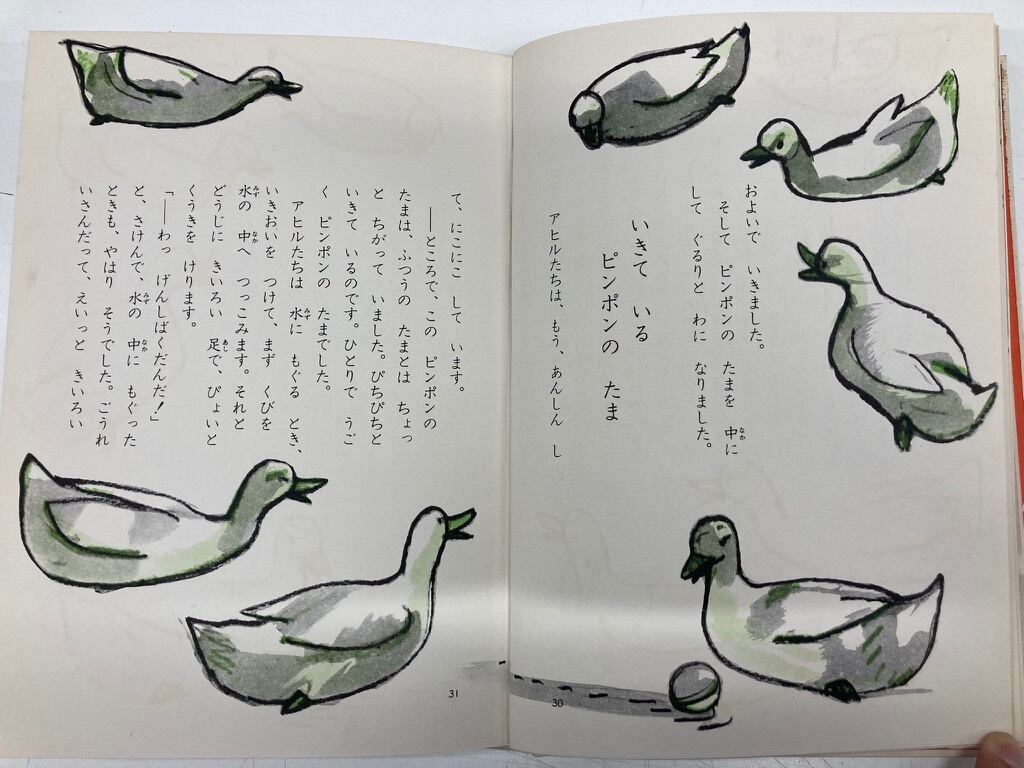 およいで いきました。
そして ピンポンの たまを 中に
して ぐるりと わに なりました。
いきて いる
ピンポンの たま
アヒルたちは、もう、あんしん し
30
て、にこにこ して います。
――ところで、この ピンポンの
たまは、ふつうの たまとは ちょっ
と ちがって いました。ぴちぴちと
いきて いるのです。ひとりで うご
く ピンポンの たまでした。
アヒルたちは 水に もぐる とき、
いきおいを つけて、まず くびを
水の 中へ つっこみます。それと
どうじに きいろい 足で、ぴょいと
くうきを けります。
「――わっ げんしばくだんだ!」
と、さけんで、水の 中に もぐった
ときも、やはり そうでした。ごうれ
いさんだって、えいっと きいろい
31